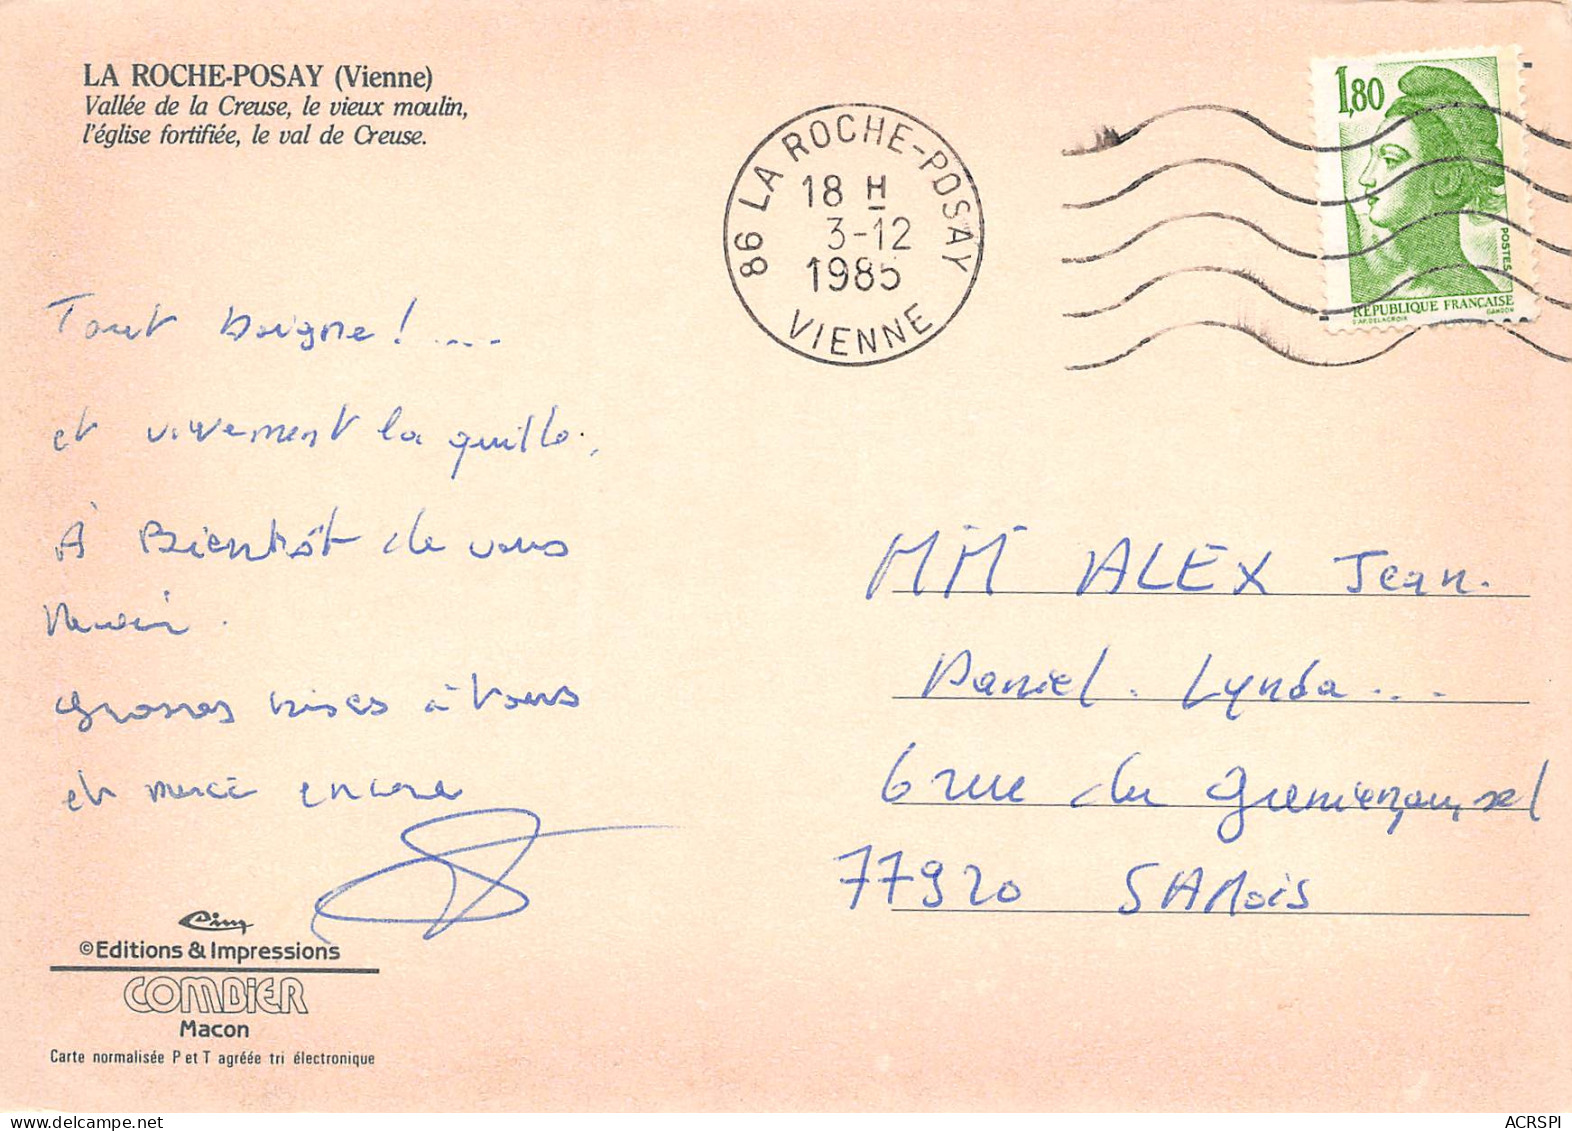 LA ROCHE-POSAY (Vienne)
Vallée de la Creuse, le vieux moulin,
l'église fortifiée, le val de Creuse.
86 LA ROCHE-POSAY
18 H
3-12
1985
VIENNE
1,80
POSTES
REPUBLIQUE FRANÇAISE
D'AP. DELACROIX GANDON
Tout baigne! ....
et vivement la quille.
À Bientôt de vous
revoir.
grosses bises à tous
et merci encore
MM ALEX Jean.
Daniel. Lynda ...
6 rue du
77920 SAMois
Cim
©Editions & Impressions
COMBIER
Macon
Carte normalisée P et T agréée tri électronique
ACRSPI